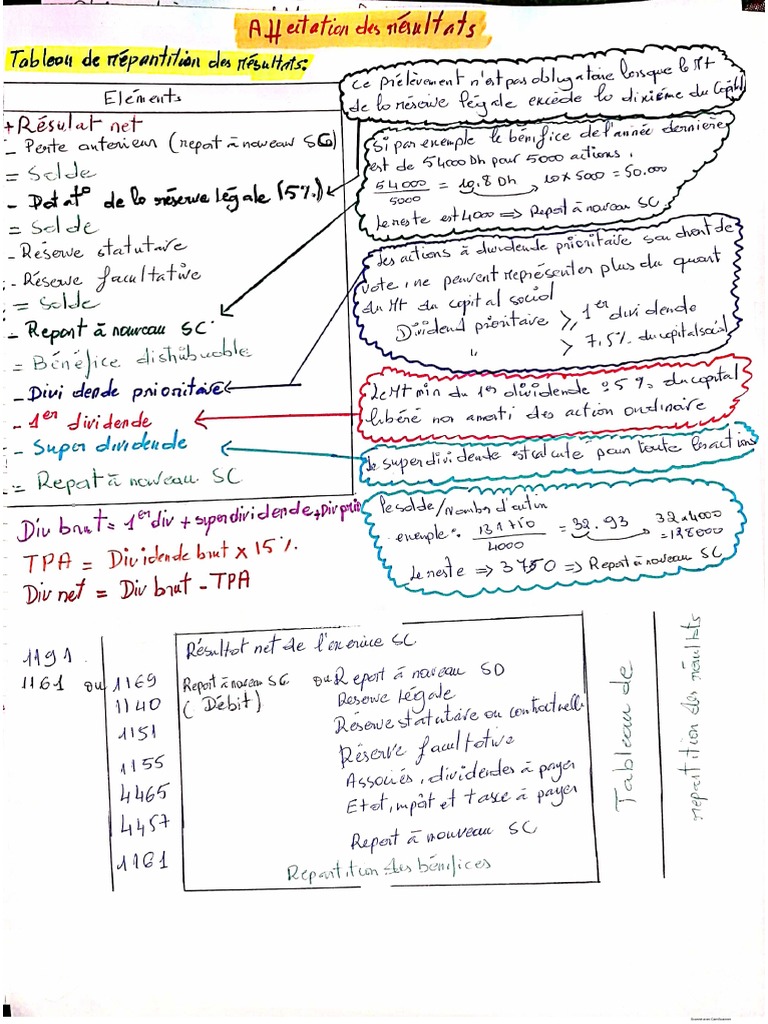 Affectation des résultats
Tableau de répartition des résultats:
Eléments
+ Résulat net
- Perte antérieur (report à nouveau SD)
= Solde
- Dotat° de la réserve légale (5%)
= Solde
- Réserve statutaire
- Réserve facultative
= Solde
- Report à nouveau SC
= Bénéfice distribuable
- Dividende prioritaire
- 1er dividende
- Super dividende
= Report à nouveau SC
Div brut = 1er div + superdividende + Div prio
TPA = Dividende brut x 15%
Div net = Div brut - TPA
Ce prélèvement n'est pas obligatoire lorsque le Mt
de la réserve légale excède le dixième du Capital
Si par exemple le bénifice de l'année dernière
est de 54000 Dh pour 5000 actions.
54000/5000 = 10.8 Dh 10 x 5000 = 50.000
Le reste est 4000 => Report à nouveau SC.
Les actions à dividende prioritaire san droit de
vote, ne peuvent représenter plus du quart
du Mt du capital social
Dividend prioritaire >, 1er dividende
" > 7,5% du capital social
Le Mt min du 1er dividende = 5% du capital
libéré non amorti des action ordinaire
Le superdividende est calculé pour toute les action
le solde/Nombre d'action
exemple: 131750/4000 = 32.93 32x4000
=128000
Le reste => 3750 => Report à nouveau SC
1191 Résultat net de l'exercice SC
1161 ou 1169 Report à nouveau SC ou Report à nouveau SD
(Débit)
1140 Reserve légale
1151 Réserve statutaire ou contractuelle
1155 Réserve facultative
4465 Associés, dividendes à payer
4457 Etat, impôt et taxe à payer
1161 Report à nouveau SC
Repartition des bénifices
Tableau de
repartition des résultats
Scanned with CamScanner